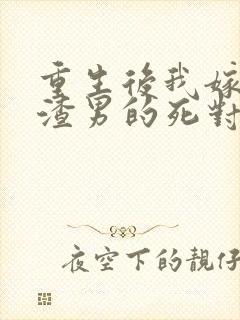 重生後我嫁
渣男的死對
夜空下的靚仔